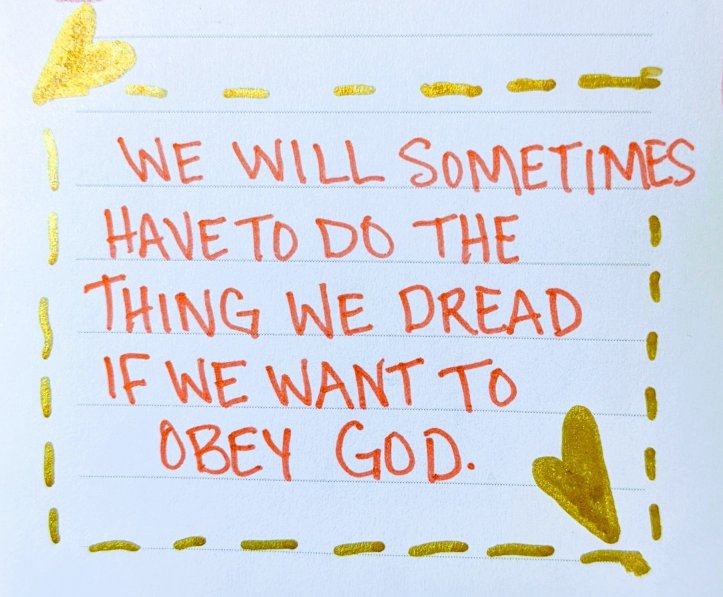 WE WILL SOMETIMES
HAVE TO DO THE
THING WE DREAD
IF WE WANT TO
OBEY GOD.